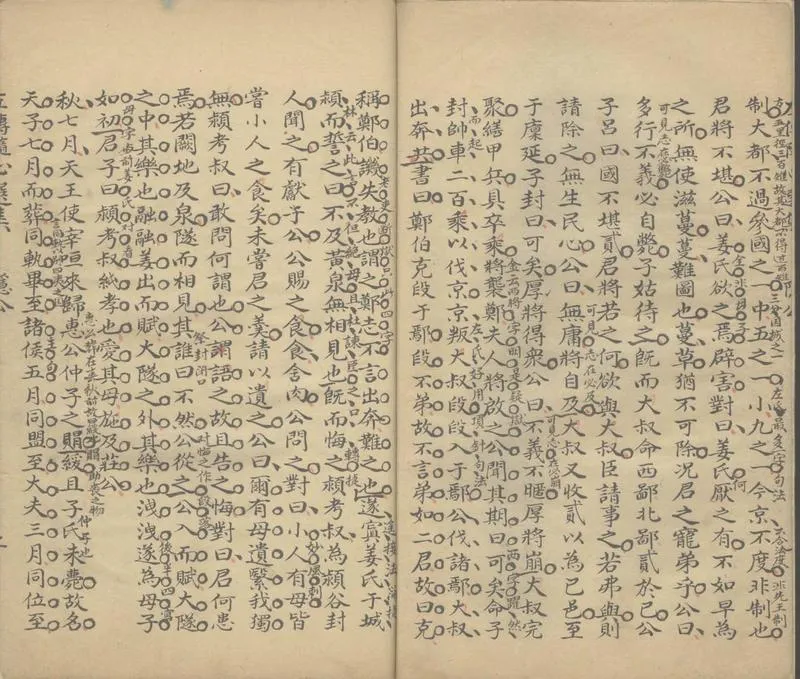 三分國城之一
左氏最多字句法
不合法度非先王制
制大都不過參國之一中五之一小九之一今京不度非制也
君將不堪公曰姜氏欲之焉辟害對曰姜氏厭之有不如早為
之所無使滋蔓蔓難圖也蔓草猶不可除況君之寵弟乎公曰
可見志在必斃
多行不義必自斃子姑待之既而大叔命西鄙北鄙貳於己公
子呂曰國不堪貳君將若之何欲與大叔臣請事之若弗與則
可見志在必及
請除之無生民心公曰無庸將自及大叔又收貳以為己邑至
可見志在必崩
于廩延子封曰可矣厚將得衆公曰不義不暱厚將崩大叔完
聚繕甲兵具卒乘將襲鄭夫人將啟之公聞其期曰可矣命子
封帥車二百乘以伐京京叛大叔段段入于鄢公伐諸鄢大叔
出奔共書曰鄭伯克段于鄢段不弟故不言弟如二君故曰克
稱鄭伯譏失教也謂之鄭志不言出奔難之也遂寘姜氏于城
林云此言不但絕母且杜諫臣之口
潁而誓之曰不及黃泉無相見也既而悔之潁考叔為潁谷封
人聞之有獻于公公賜之食食舍肉公問之對曰小人有母皆
嘗小人之食矣未嘗君之羹請以遺之公曰爾有母遺繄我獨
無潁考叔曰敢問何謂也公語之故且告之悔對曰君何患
焉若闕地及泉隧而相見其誰曰不然公從之公入而賦大隧
之中其樂也融融姜出而賦大隧之外其樂也洩洩遂為母子
如初君子曰潁考叔純孝也愛其母施及莊公
仲子也
秋七月天王使宰咺來歸惠公仲子之賵緩且子氏未薨故名
天子七月而葬同軌畢至諸侯五月同盟至大夫三月同位至